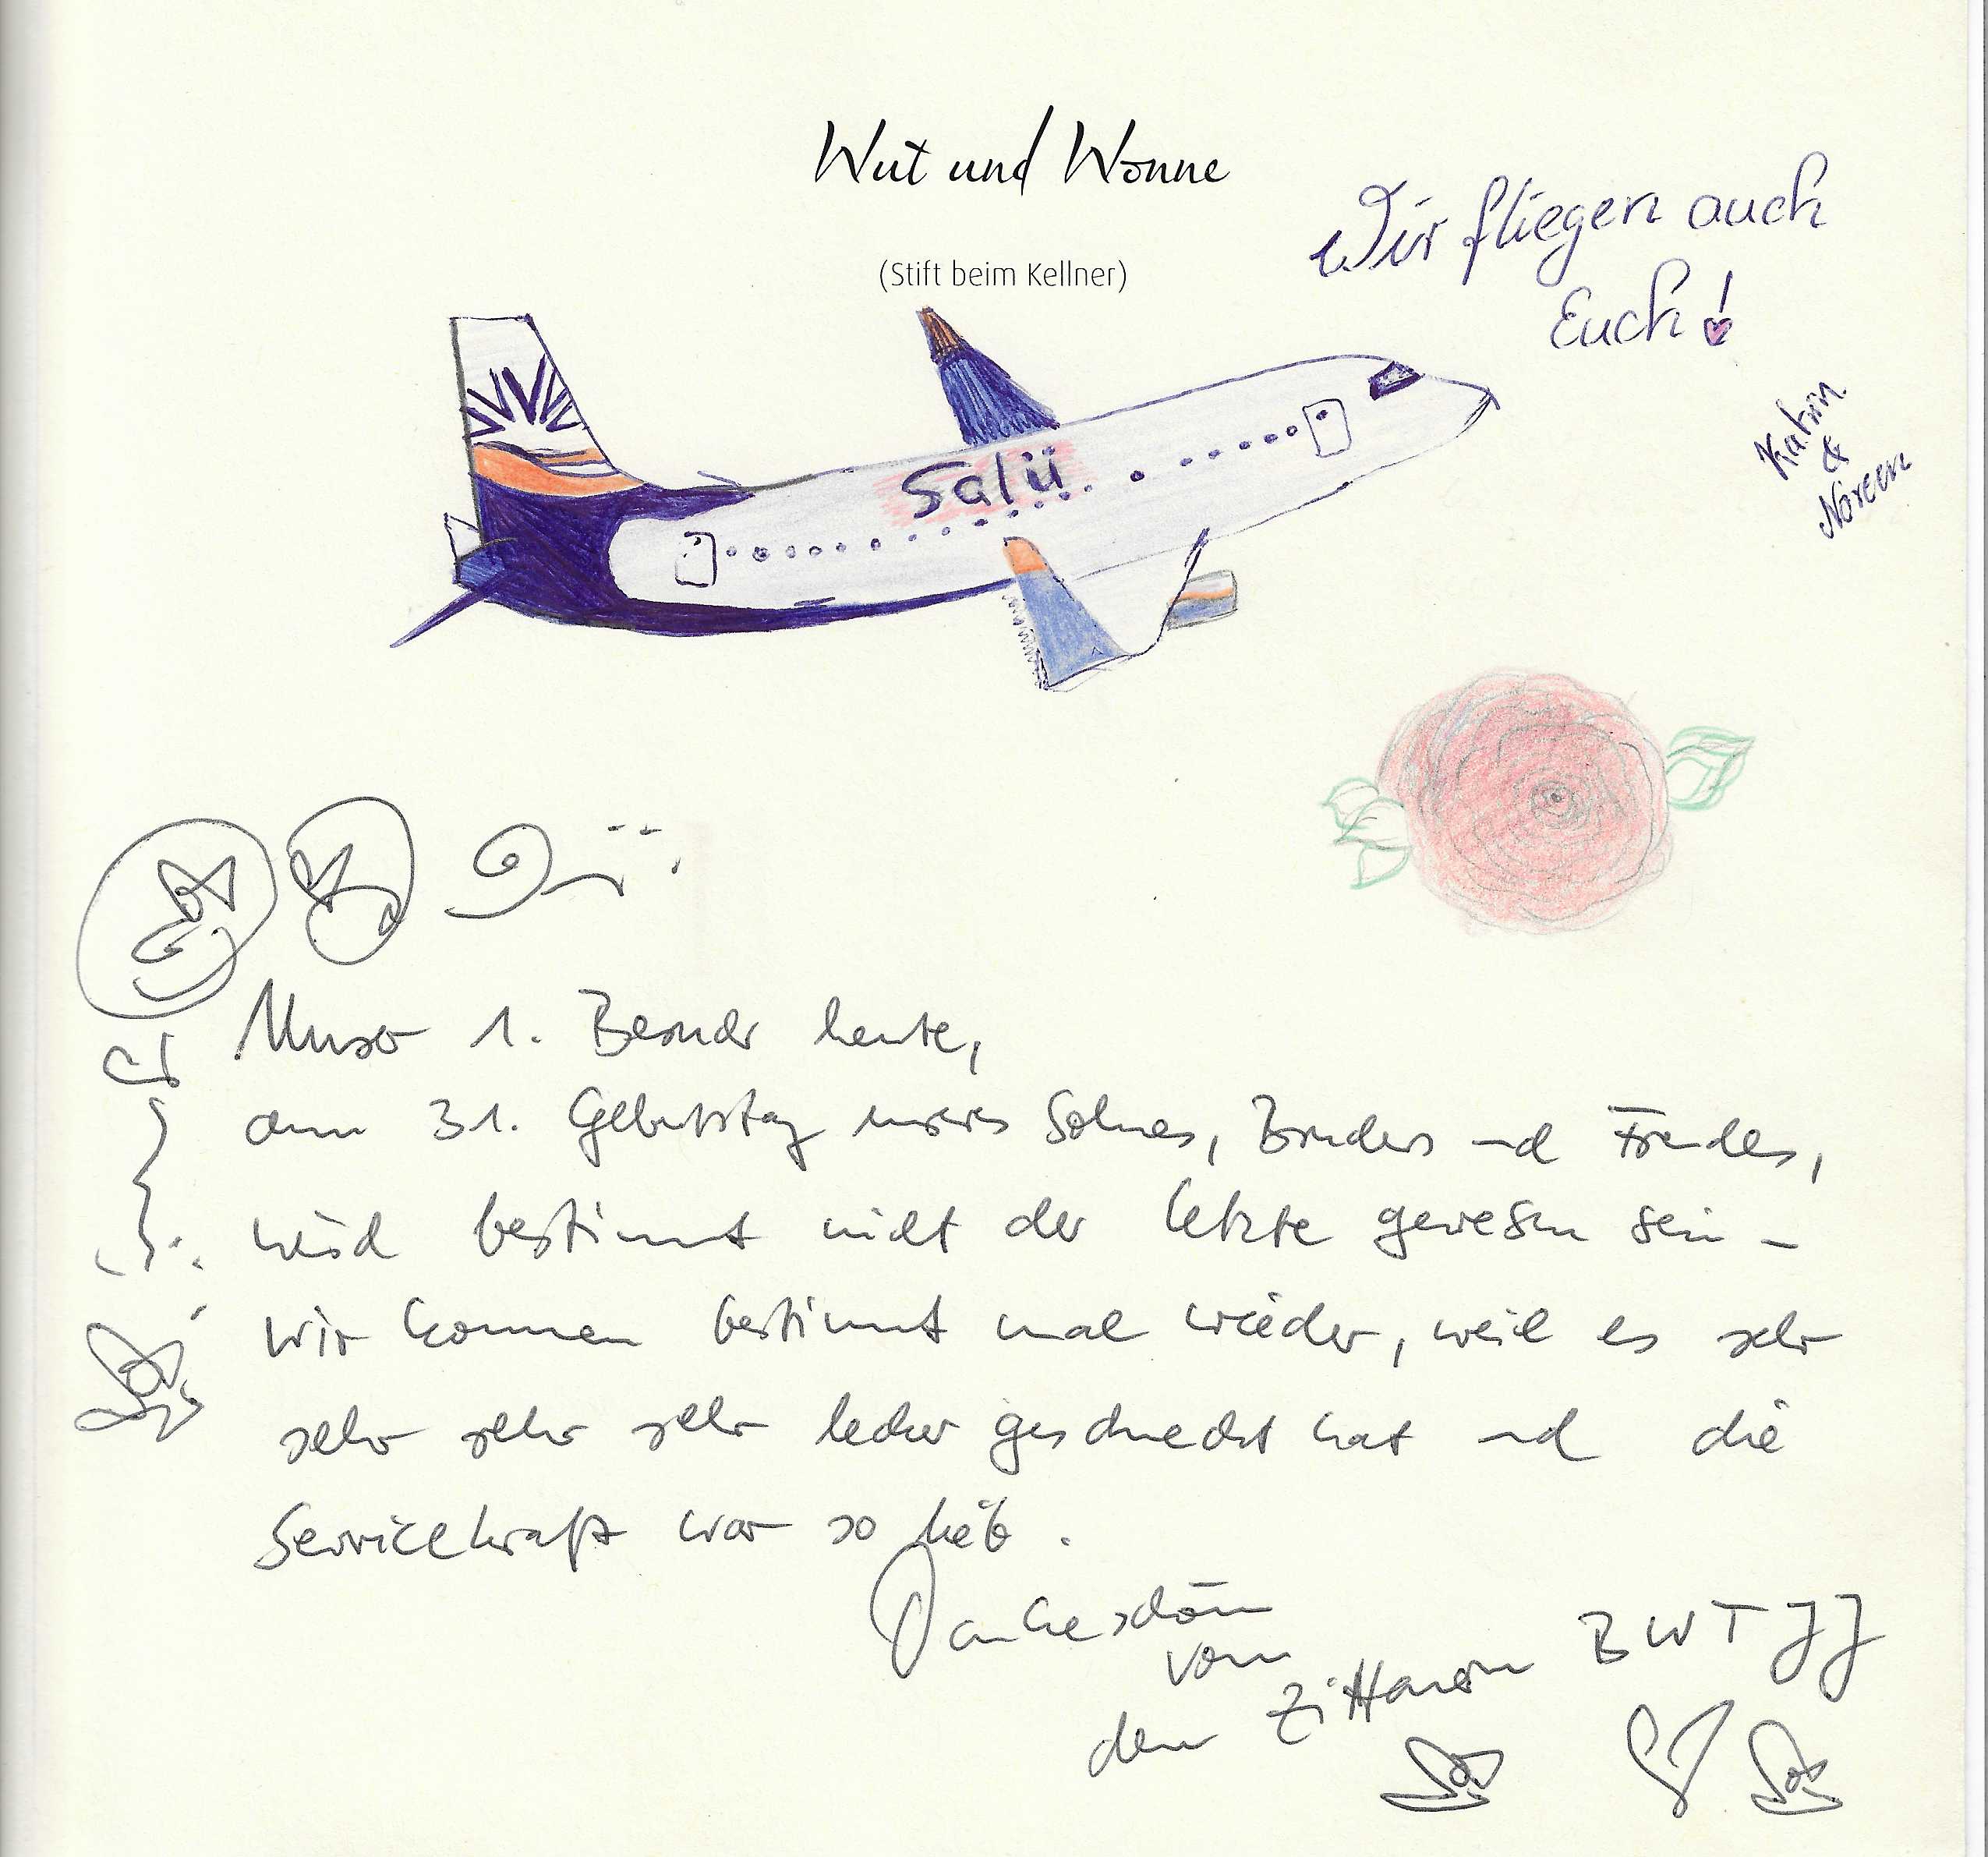 Wut und Wonne
(Stift beim Kellner)
Wir fliegen auch
Euch!
Katrin
&
Noreen
Salü
Unser 1. Besuch heute,
am 31. Geburtstag unseres Sohnes, Bruders und Freundes,
wird bestimmt nicht der letzte gewesen sein –
wir kommen bestimmt mal wieder, weil es sehr
sehr sehr sehr lecker geschmeckt hat und die
Servicekraft war so lieb.
Dankeschön
von
den Zittauern BWTJJ